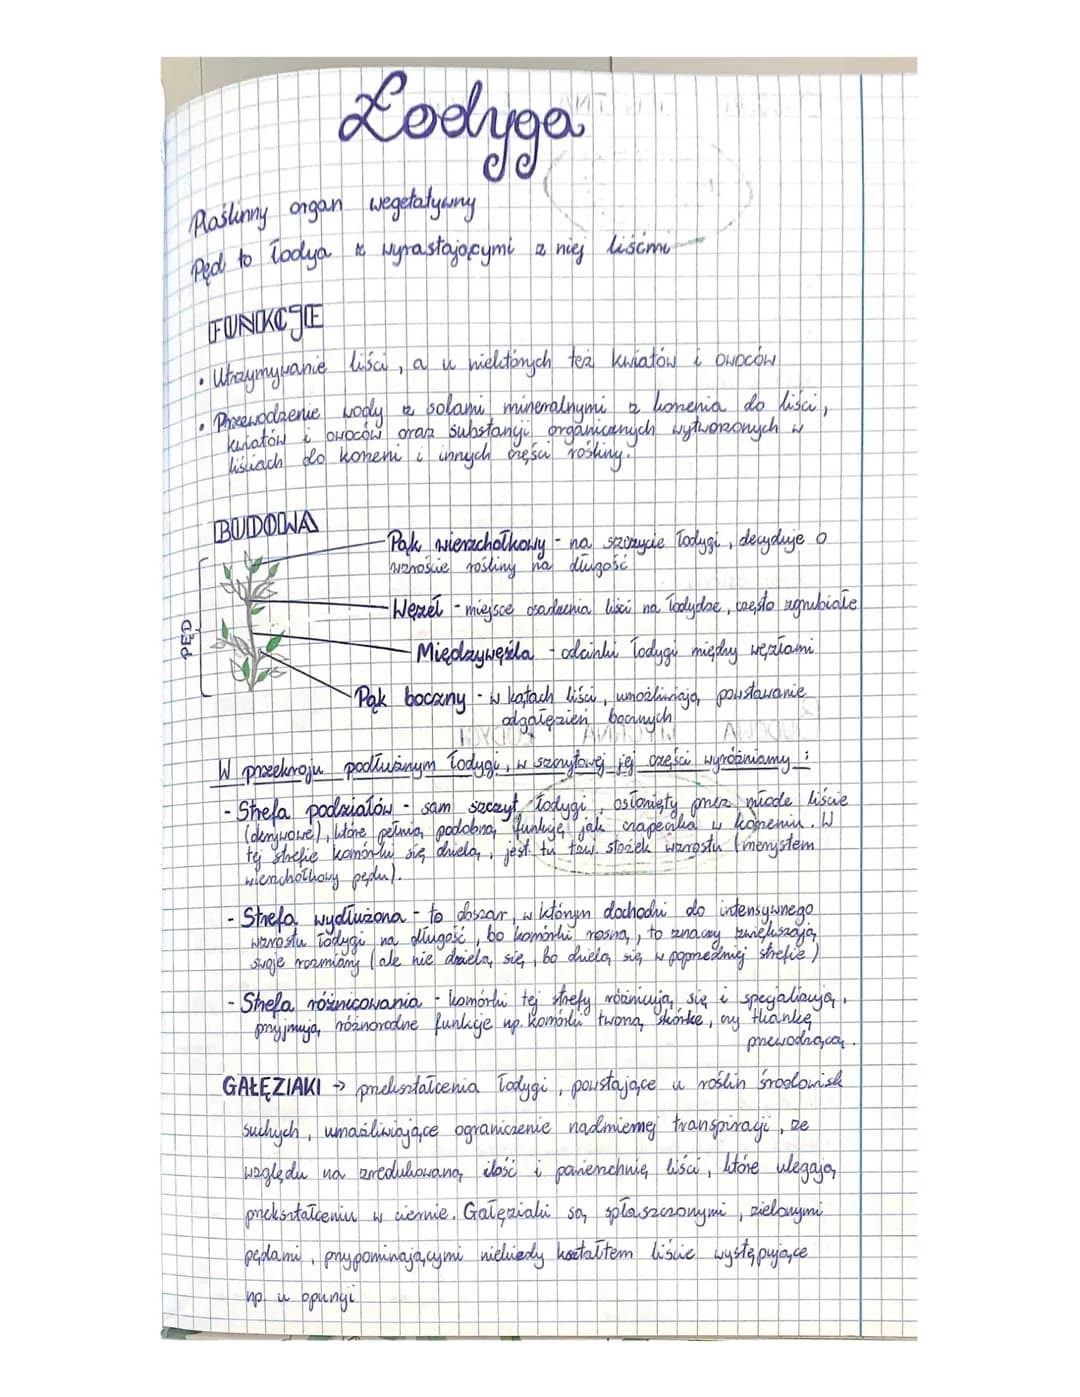 Łodyga
Roślinny organ wegetatywny
Pęd to łodya z wyrastającymi z niej liśćmi
FUNKCJE
• Utrzymywanie liści, a u niektórych też kwiatów i owoców
• Przewodzenie wody z solami mineralnymi z korzenia do liści,
kwiatów i owoców oraz substancji organicznych wytworzonych w
liściach do korzeni i innych części rośliny.
BUDOWA
Pąk wierzchołkowy - na szczycie łodygi, decyduje o
wzroście rośliny na długość
Węzeł - miejsce osadzenia liści na łodydze, często zgrubiałe
PĘD
Międzywęźla - odcinki łodygi między węzłami
Pąk boczny - w kątach liści, umożliwiają powstawanie
odgałęzień bocznych
W przekroju podłużnym łodygi, w szczytowej jej części wyróżniamy:
- Strefa podziałów - sam szczyt łodygi, osłonięty przez młode liście
(okrywowe), które pełnią podobną funkcję jak czapeczka w korzeniu. W
tej strefie komórki się dzielą, jest tu tzw. stożek wzrostu (merystem
wierzchołkowy pędu).
- Strefa wydłużona - to obszar, w którym dochodzi do intensywnego
wzrostu łodygi na długość, bo komórki rosną, to znaczy zwiększają
swoje rozmiary (ale nie dzielą się, bo dzielą się w poprzedniej strefie)
- Strefa różnicowania - komórki tej strefy różnicują się i specjalizują,
przyjmują różnorodne funkcje np. komórki tworzą skórkę, czy tkankę
przewodzącą.
GAŁĘZIAKI → przekształcenia łodygi, powstające u roślin środowisk
suchych, umożliwiające ograniczenie nadmiernej transpiracji, ze
względu na zredukowaną ilość i powierzchnię liści, które ulegają
przekształceniu w ciernie. Gałęziaki są spłaszczonymi, zielonymi
pędami, przypominającymi niekiedy kształtem liście występujące
np. u opuncji